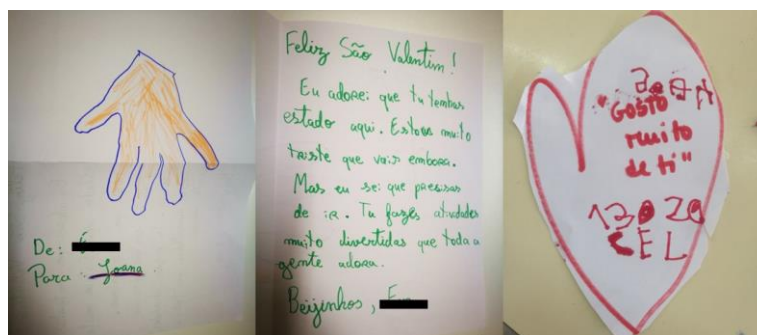 De:
Para Joana
Feliz São Valentim!
Eu adorei que tu tenhas
estado aqui. Estou muito
triste que vais embora.
Mas eu sei que precisas
de ir. Tu fazes atividades
muito divertidas que toda a
gente adora.
Beijinhos,
"GOSTO
muito
de ti"